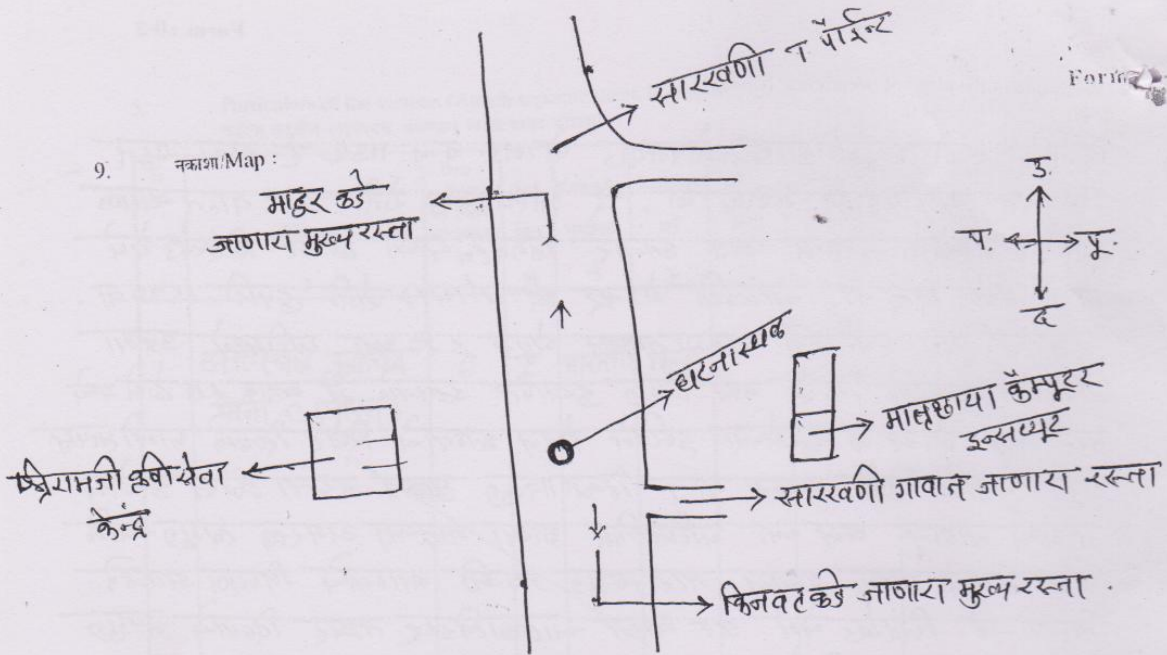 सारखणी त पॉईन्ट
Form
9. नकाशा/Map :
माहूर कडे
जाणारा मुख्य रस्ता
उ.
प. पू.
द
घटनास्थळ
मातृछाया कॅम्पूटर
इन्सट्युट
श्रीरामजी कृषी सेवा
केन्द्र
सारखणी गावात जाणारा रस्ता
किनवट कडे जाणारा मुख्य रस्ता.